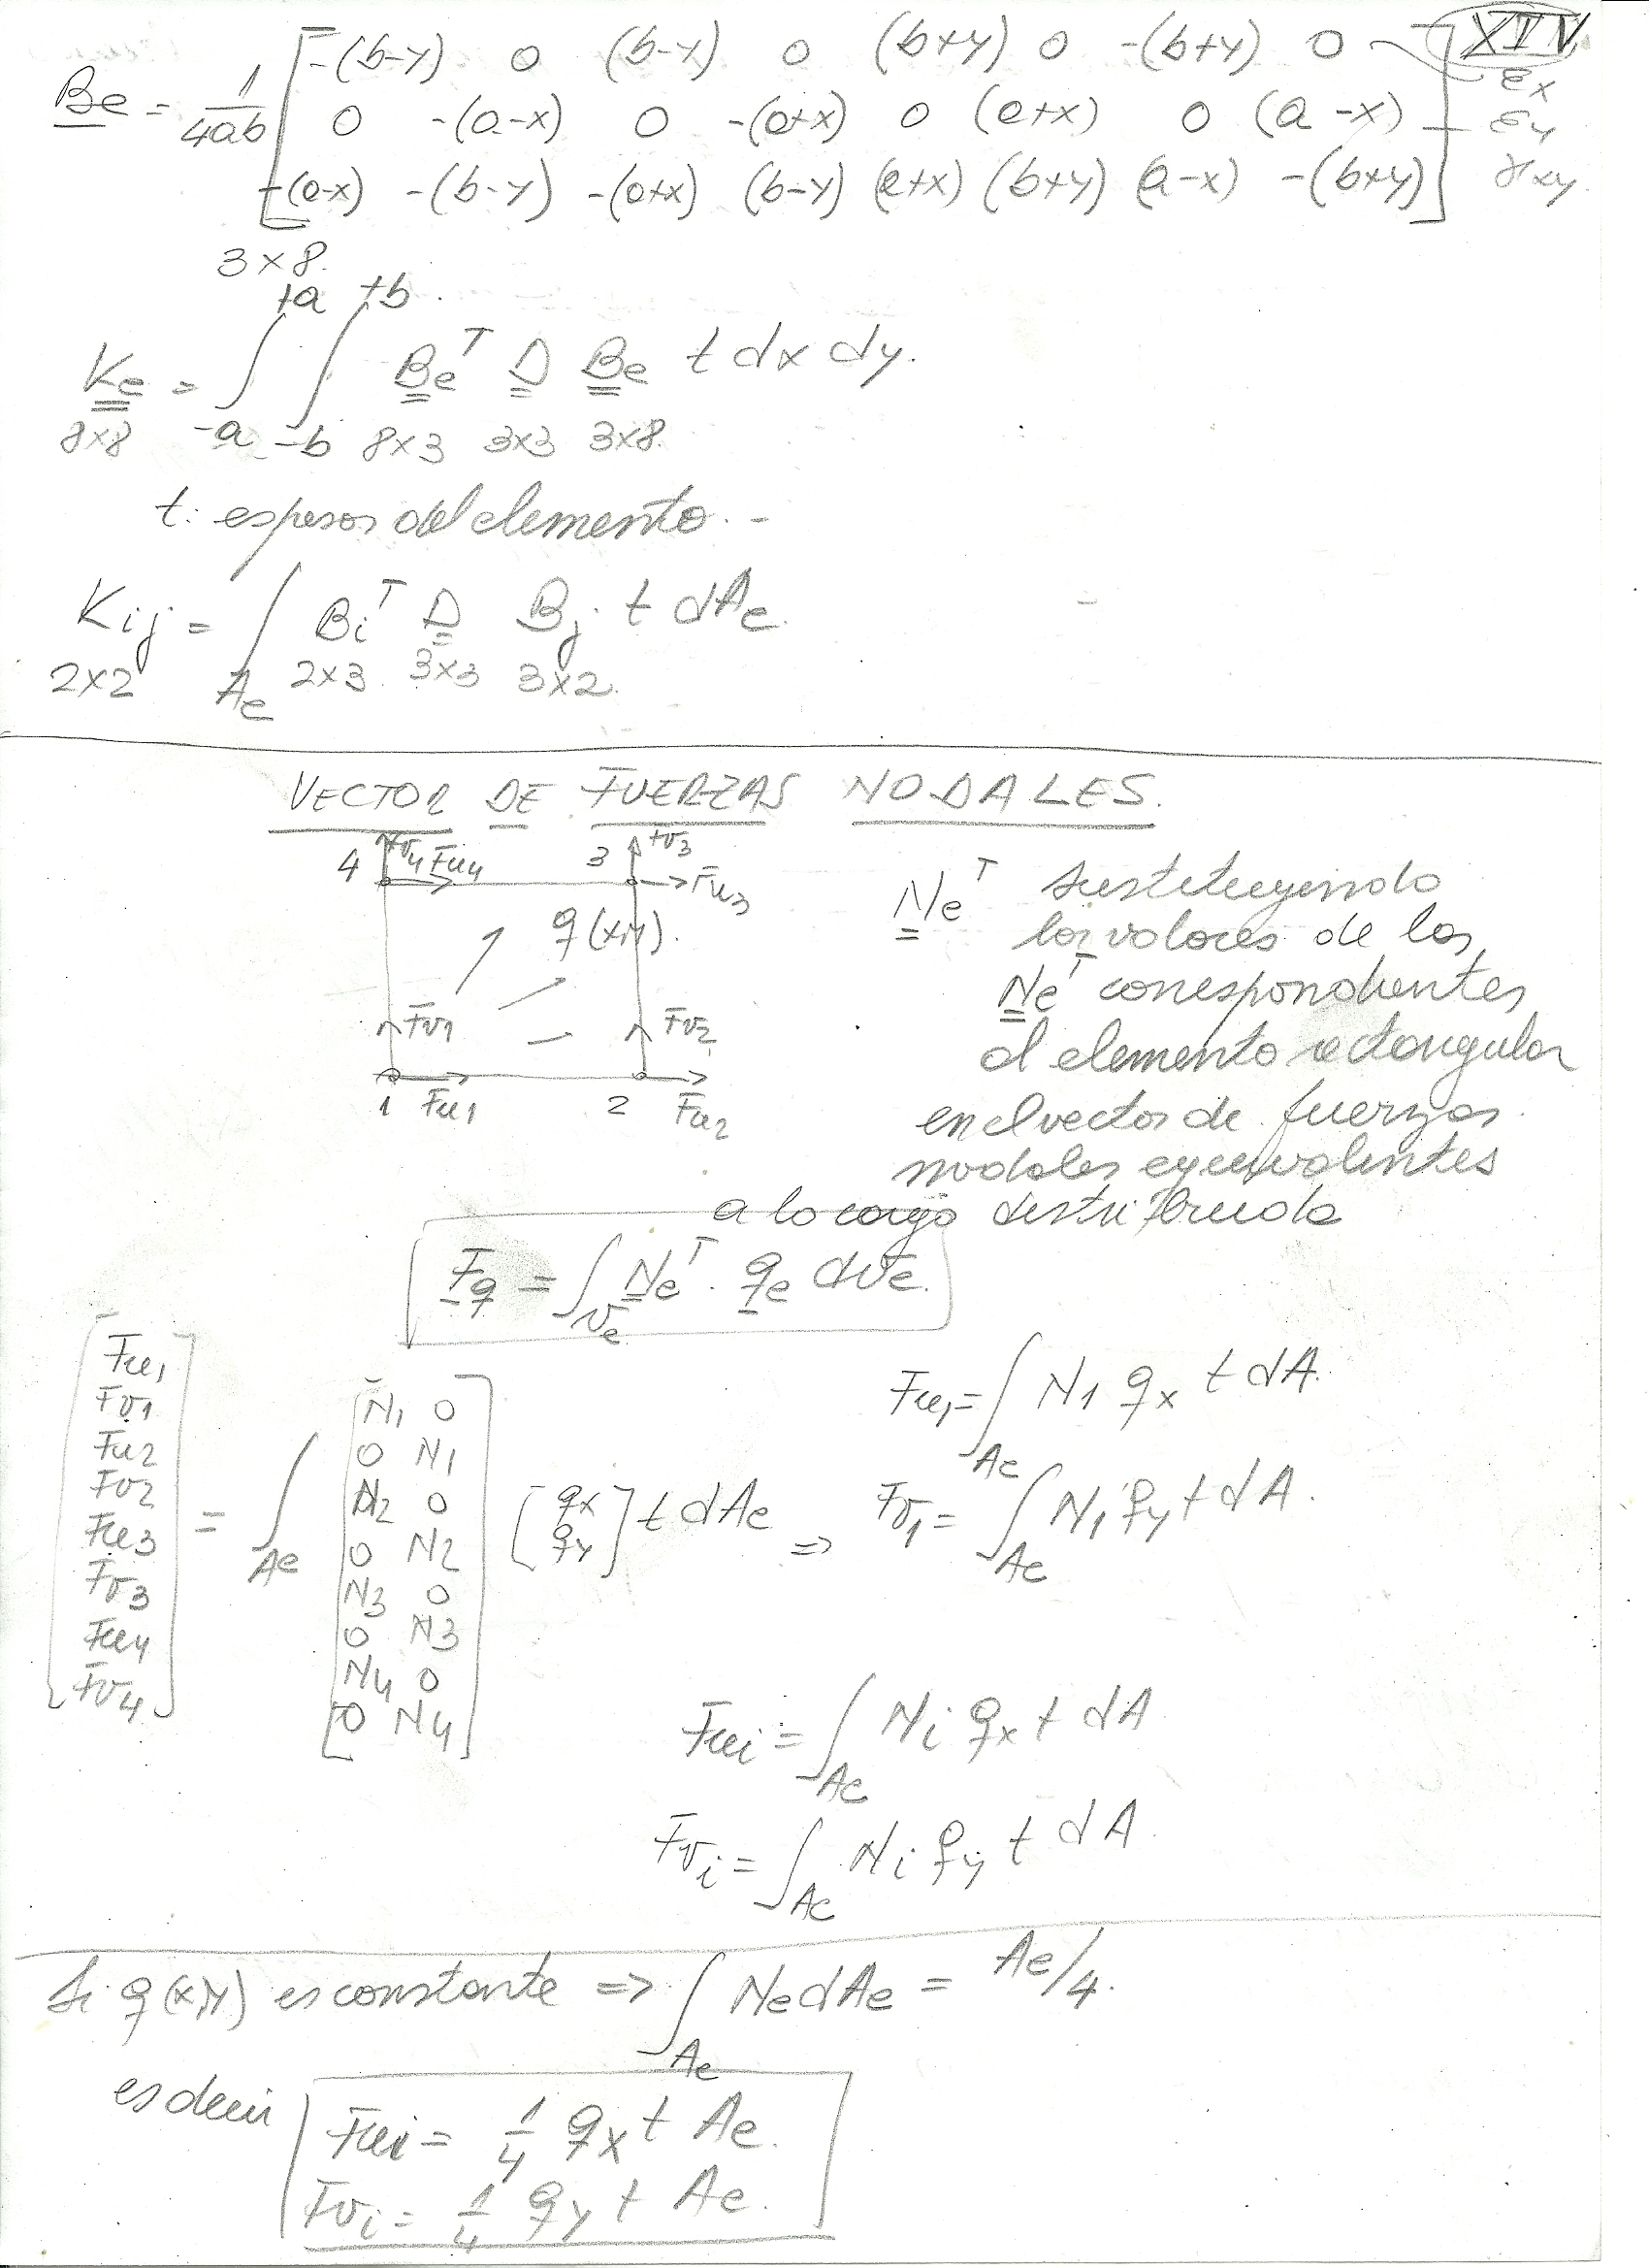 XIV
Be = 1/4ab [ -(b-y) 0 (b-y) 0 (b+y) 0 -(b+y) 0 ] εx
0 -(a-x) 0 -(a+x) 0 (a+x) 0 (a-x) εy
-(a-x) -(b-y) -(a+x) (b-y) (a+x) (b+y) (a-x) -(b+y) γxy
3x8.
+a +b.
Ke = ∫ ∫ Be^T D Be t dx dy.
8x8 -a -b 8x3 3x3 3x8.
t: espesor del elemento.-
Kij = ∫ Bi^T D Bj t dAe.
2x2 Ae 2x3. 3x3 3x2.
VECTOR DE FUERZAS NODALES.
4 Fv4 Fu4 3 Fv3 Fu3
q(x,y).
Fv1 Fv2
1 Fu1 2 Fu2
Ne^T sustituyendo
los valores de los
Ne^T correspondientes
al elemento rectangular
en el vector de fuerzas
nodales equivalentes
a la carga distribuida
Fq = ∫ve Ne^T . qe dve.
[ Fu1 Fv1 Fu2 Fv2 Fu3 Fv3 Fu4 Fv4 ] = ∫Ae
[ N1 0
0 N1
N2 0
0 N2
N3 0
0 N3
N4 0
0 N4 ]
[ qx qy ] t dAe ⇒
Fu1 = ∫Ae N1 qx t dA.
Fv1 = ∫Ae N1 qy t dA.
Fui = ∫Ae Ni qx t dA
Fvi = ∫Ae Ni qy t dA.
Si q(x,y) es constante ⇒ ∫Ae Ne dAe = Ae/4.
es decir
Fui = 1/4 qx t Ae.
Fvi = 1/4 qy t Ae.